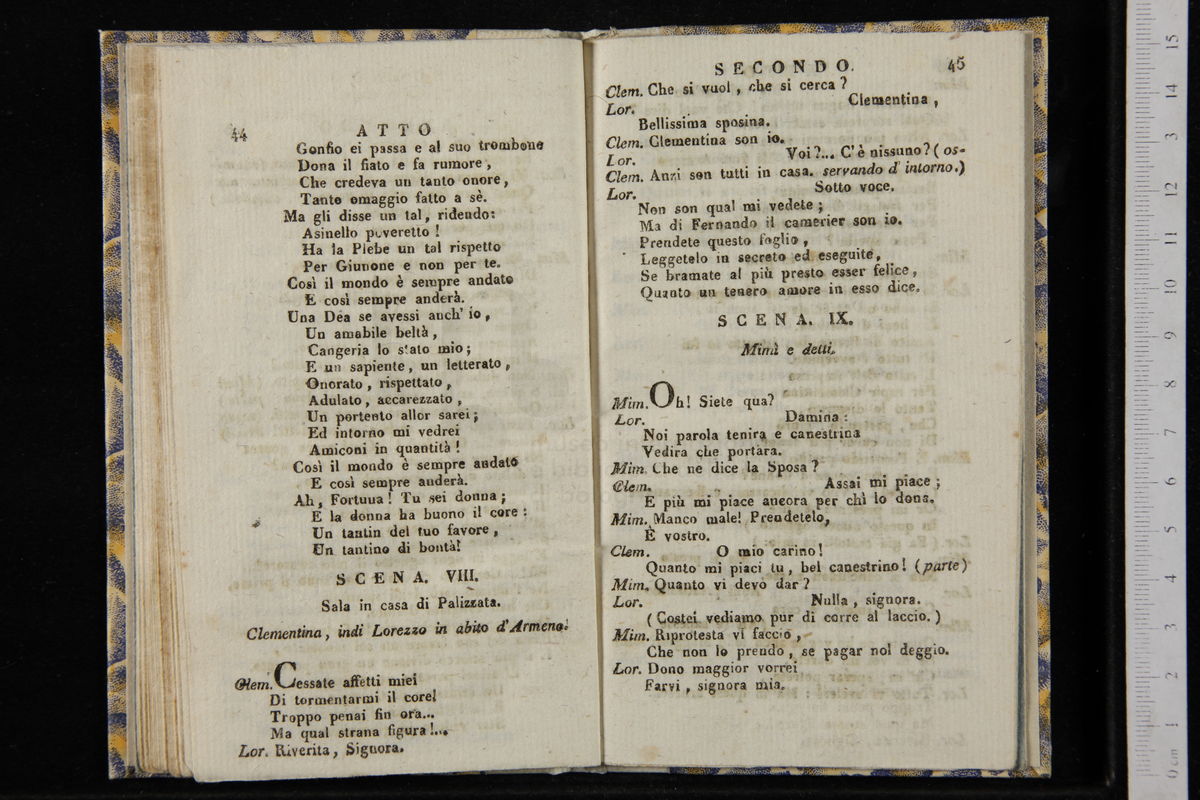 44
ATTO
Gonfio ei passa e al suo trombone
Dona il fiato e fa rumore,
Che credeva un tanto onore,
Tanto omaggio fatto a sè.
Ma gli disse un tal, ridendo:
Asinello poveretto!
Ha la Plebe un tal rispetto
Per Giunone e non per te.
Così il mondo è sempre andato
E così sempre anderà.
Una Dea se avessi anch' io,
Un amabile beltà,
Cangeria lo stato mio;
E un sapiente, un letterato,
Onorato, rispettato,
Adulato, accarezzato,
Un portento allor sarei;
Ed intorno mi vedrei
Amiconi in quantità!
Così il mondo è sempre andato
E così sempre anderà.
Ah, Fortuna! Tu sei donna;
E la donna ha buono il core:
Un tantin del tuo favore,
Un tantino di bontà!
SCENA. VIII.
Sala in casa di Palizzata.
Clementina, indi Lorezzo in abito d'Armeno.
Clem. Cessate affetti miei
Di tormentarmi il core!
Troppo penai fin ora...
Ma qual strana figura!...
Lor. Riverita, Signora.
SECONDO. 45
Clem. Che si vuol, che si cerca?
Lor. Clementina,
Bellissima sposina.
Clem. Clementina son io.
Lor. Voi?... C'è nissuno? (os-
Clem. Anzi son tutti in casa. servando d' intorno.)
Lor. Sotto voce.
Non son qual mi vedete;
Ma di Fernando il camerier son io.
Prendete questo foglio,
Leggetelo in secreto ed eseguite,
Se bramate al più presto esser felice,
Quanto un tenero amore in esso dice.
SCENA. IX.
Mimì e detti.
Mim. Oh! Siete qua?
Lor. Damina:
Noi parola tenira e canestrina
Vedira che portàra.
Mim. Che ne dice la Sposa?
Clem. Assai mi piace;
E più mi piace ancora per chì lo dona.
Mim. Manco male! Prendetelo,
È vostro.
Clem. O mio carino!
Quanto mi piaci tu, bel canestrino! (parte)
Mim. Quanto vi devo dar?
Lor. Nulla, signora.
(Costei vediamo pur di corre al laccio.)
Mim. Riprotesta vi faccio,
Che non lo prendo, se pagar nol deggio.
Lor. Dono maggior vorrei
Farvi, signora mia.
0 cm 1 2 3 4 5 6 7 8 9 10 11 12 13 14 15
1 2 3 4